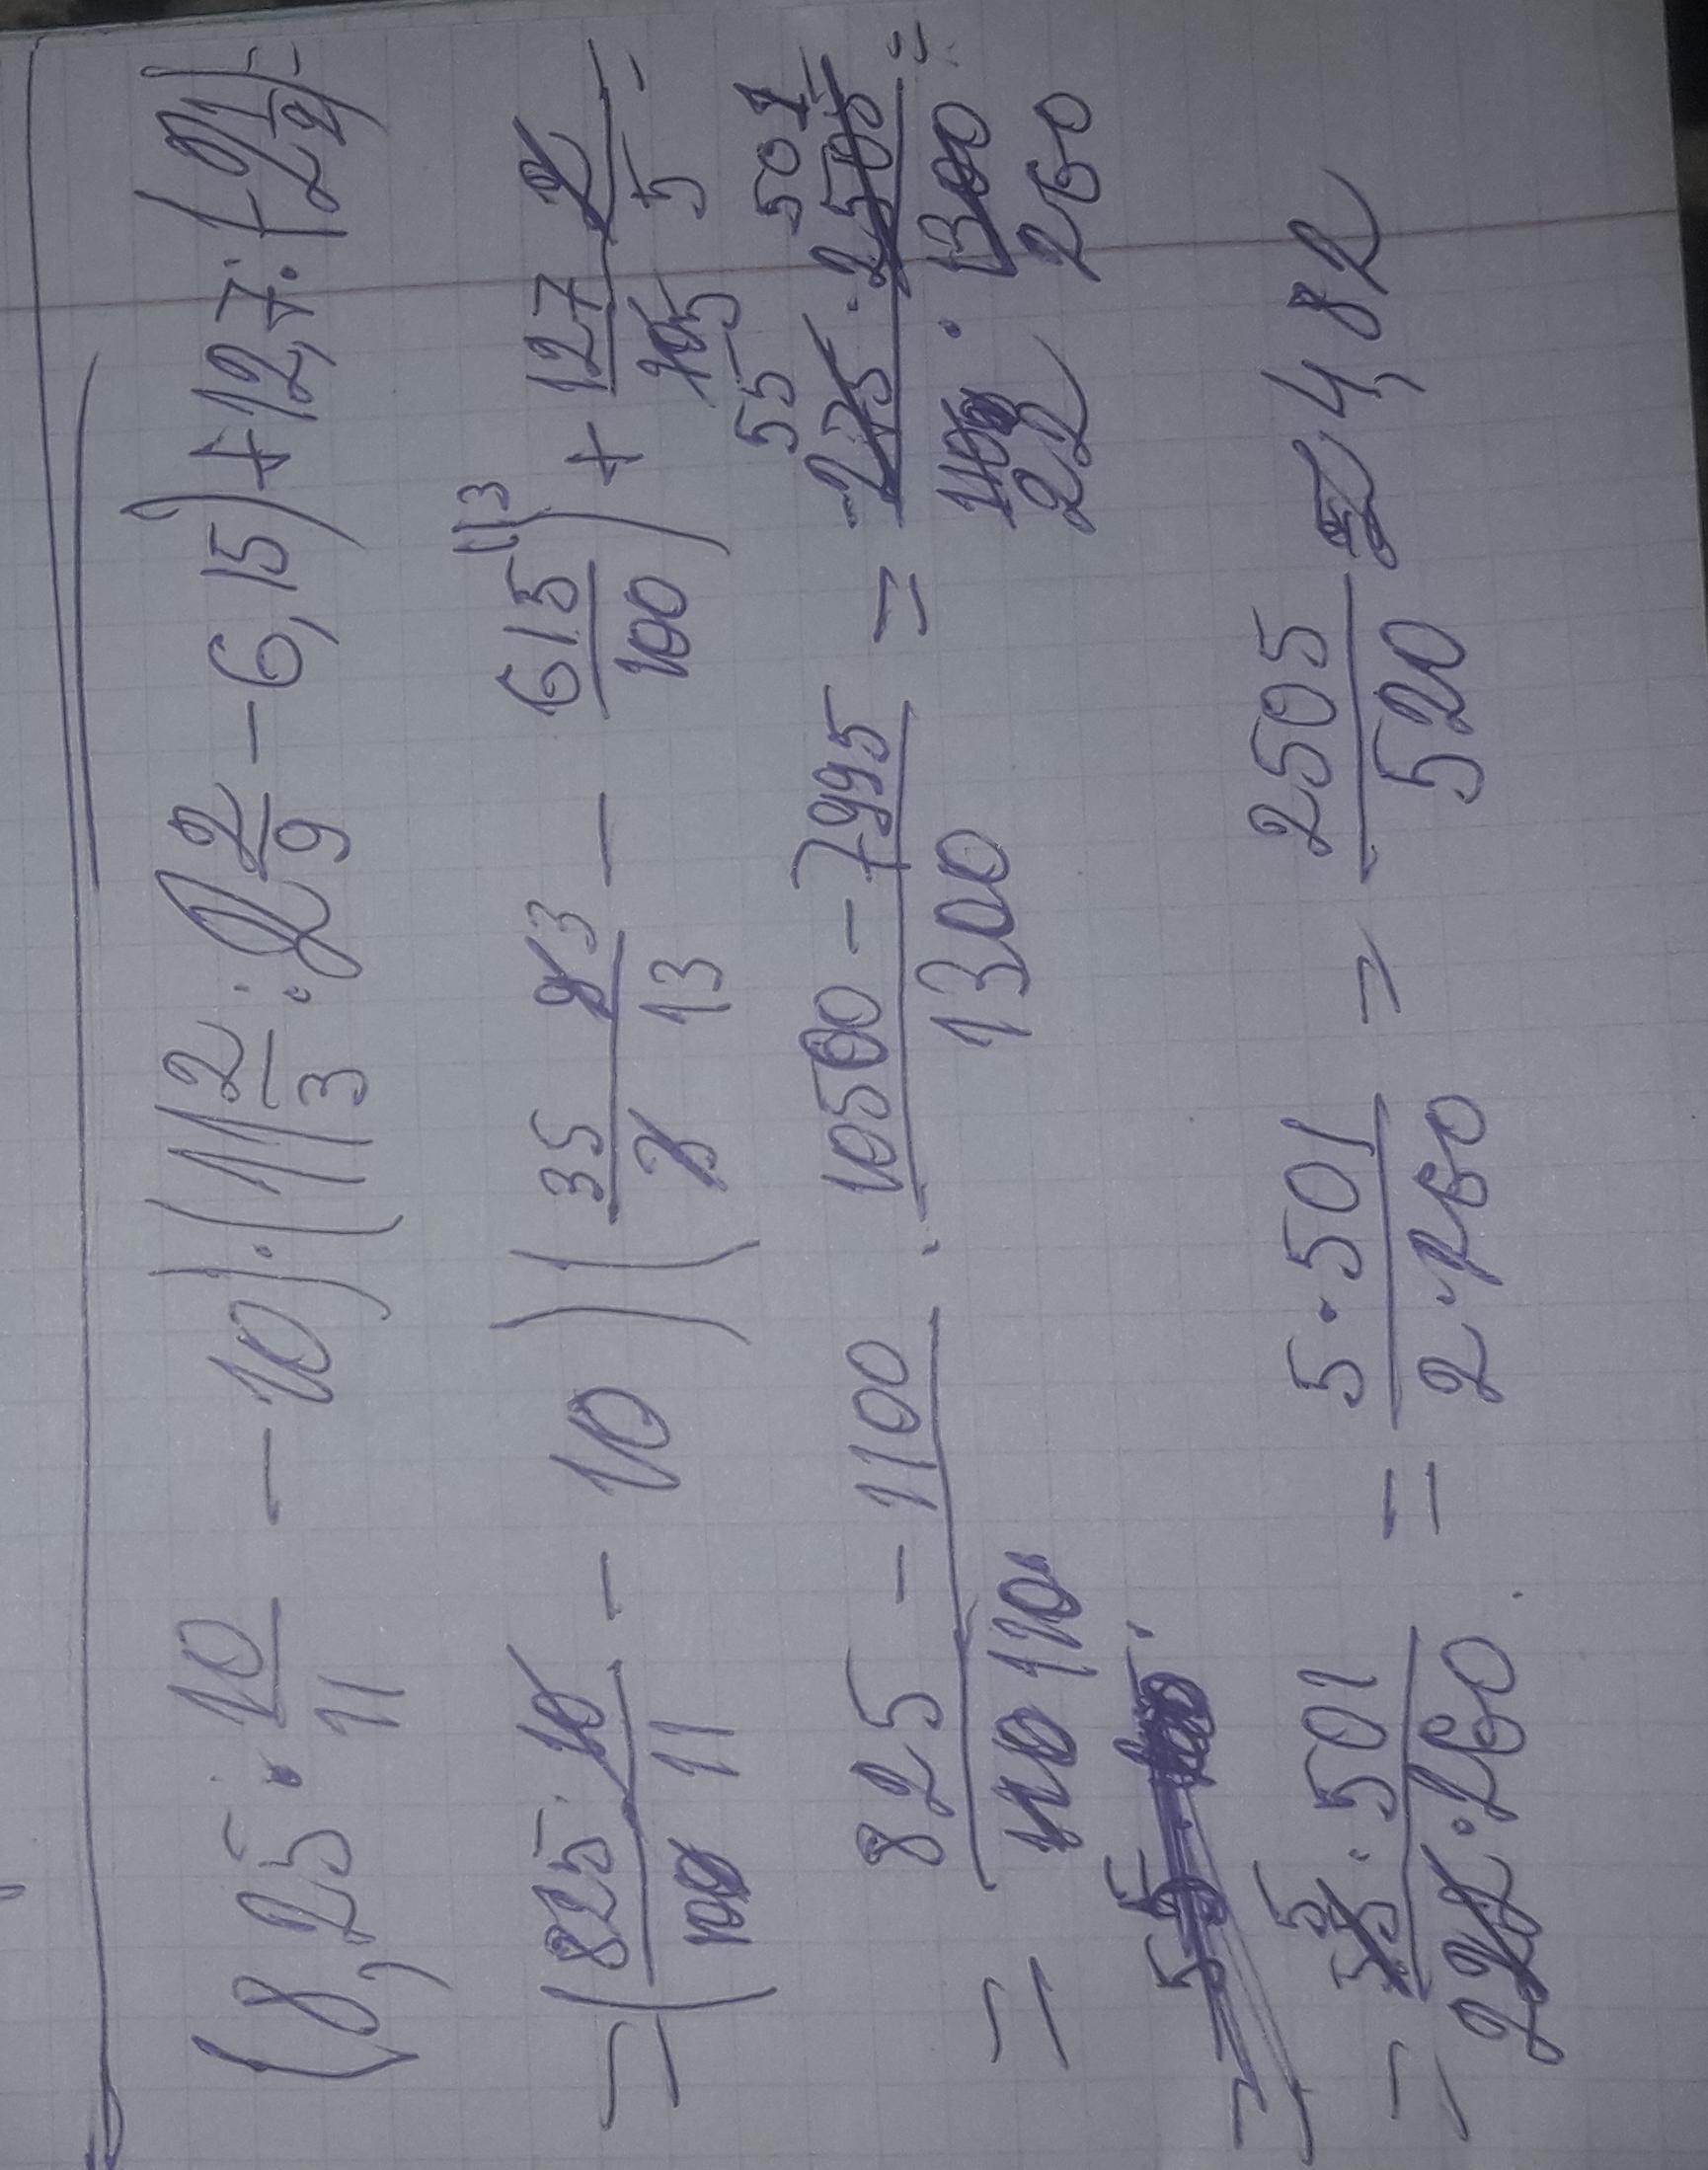 (8,25 · 10/11 - 10) · (11 2/3 : 2 2/9 - 6,15) + 12,7 : (2 1/2) =
= (825 · 10 / 100 11 - 10) (35 9 3 / 3 13 - 615 13 / 100) + 127 2 / 10 5 5 =
= 825 - 1100 / 110 110 · 10500 - 7995 / 1300 = -275 55 · 2505 501 / 110 22 · 1300 260 =
= 55 5 · 501 / 22 2 · 260 = 5 · 501 / 2 · 260 = 2505 / 520 ≈ 4,82